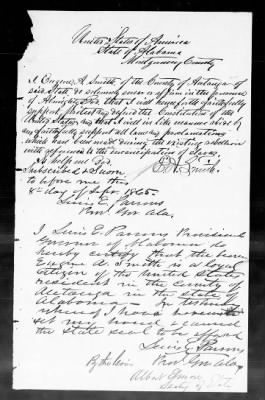 United States of America
State of Alabama
Montgomery County
I Eugene A. Smith of the County of Autauga of
said State do solemnly swear or affirm in the presence
of Almighty God that I will henceforth faithfully
support protect and defend the Constitution of the
United States and that I will in like manner abide by
and faithfully support all laws and proclamations
which have been made during the existing rebellion
with reference to the emancipation of slaves.
So help me God.
Subscribed & sworn
to before me this
8th day of Sept. 1865.
Lewis E. Parsons
Prov. Gov Ala.
I Lewis E Parsons Provisional
Governor of Alabama do
hereby certify that the
Eugene A. Smith is a loyal
Citizen of the United States
resident in the county of
Autauga in the state of
Alabama In testimony
whereof I have hereunto
set my hand & caused
the State seal to be affixed
Lewis E. Parsons
Prov. Gov Ala,
By the Gov
Albert Elmore
Secty of State